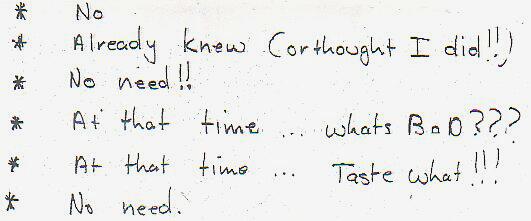 * No
* Already knew (or thought I did!!)
* No need!!
* At that time ... whats BaD???
* At that time ... Taste what!!!
* No need.